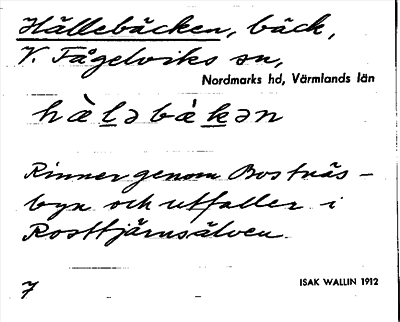 Hällebäcken, bäck,
V. Fågelviks sn,
Nordmarks hd, Värmlands län
hàləbàkən
Rinner genom Bostnäs-
byn och utfaller i
Rosttjärnsälven.
7
ISAK WALLIN 1912